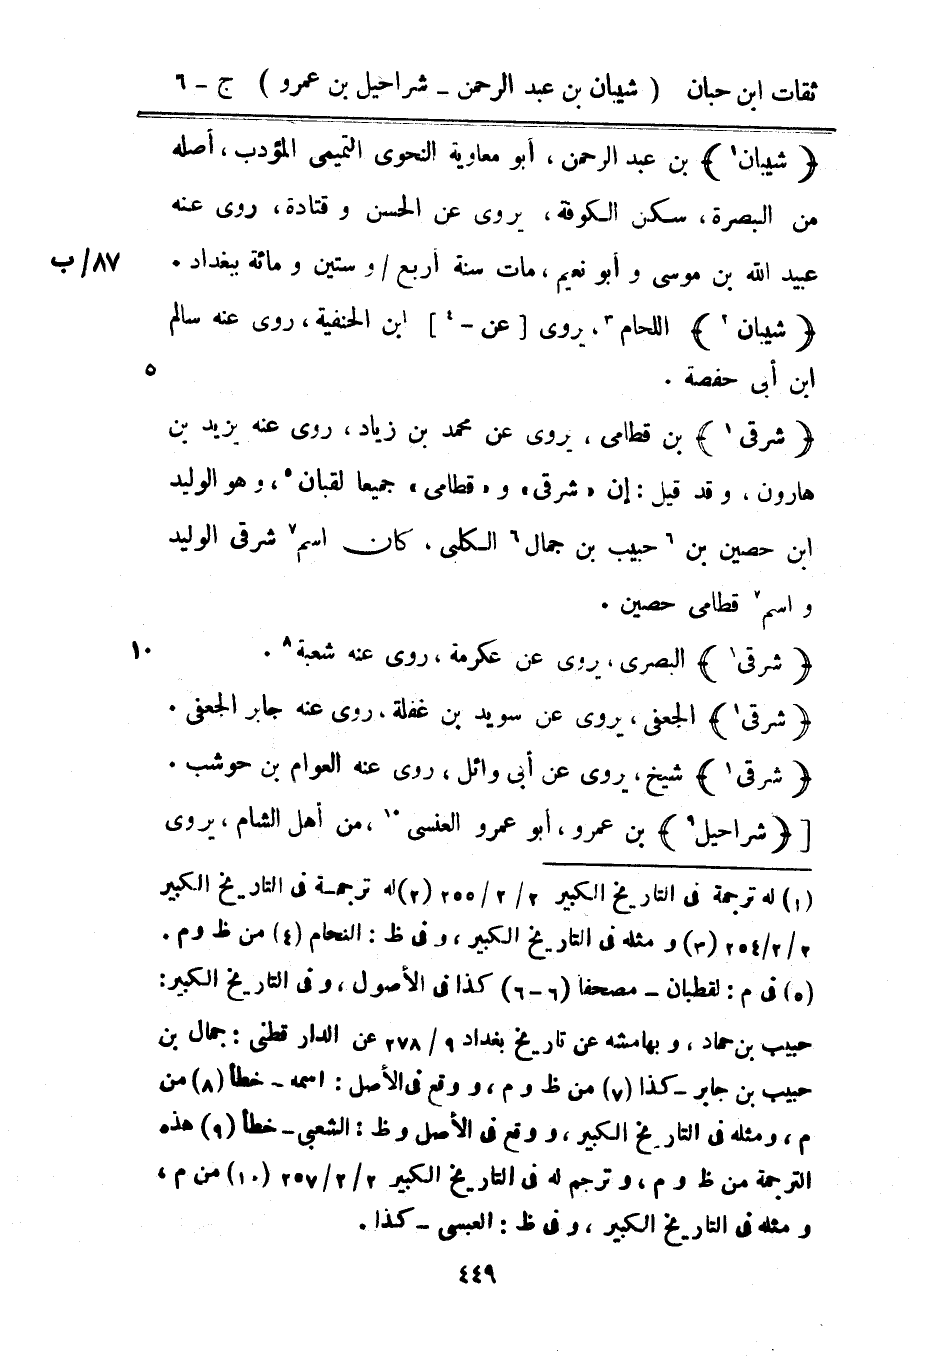 ثقات ابن حبان ( شيبان بن عبد الرحمن - شراحيل بن عمرو ) ج - ٦
﴿ شيبان١ ﴾ بن عبد الرحمن، أبو معاوية النحوى التميمى المؤدب، أصله
من البصرة، سكن الكوفة، يروى عن الحسن و قتادة، روى عنه
عبيد الله بن موسى و أبو نعيم، مات سنة أربع / و ستين و مائة ببغداد . ٨٧/ ب
﴿ شيبان٢ ﴾ اللحام٣، يروى [ عن - ٤ ] ابن الحنفية، روى عنه سالم
ابن أبى حفصة . ٥
﴿ شرقى١ ﴾ بن قطامى، يروى عن محمد بن زياد، روى عنه يزيد بن
هارون، و قد قيل : إن « شرقى» و « قطامى» جميعا لقبان٥، و هو الوليد
ابن حصين بن ٦ حبيب بن جمال٦ الكلبى، كان اسم٧ شرقى الوليد
و اسم٧ قطامى حصين .
﴿ شرقى١ ﴾ البصرى، يروى عن عكرمة، روى عنه شعبة٨ . ١٠
﴿ شرقى١ ﴾ الجعفى، يروى عن سويد بن غفلة، روى عنه جابر الجعفى .
﴿ شرقى١ ﴾ شيخ، يروى عن أبى وائل، روى عنه العوام بن حوشب .
[ ﴿ شراحيل٩ ﴾ بن عمرو، أبو عمرو العنسى١٠، من أهل الشام، يروى
(١) له ترجمة فى التاريخ الكبير ٢/ ٢/ ٢٥٥ (٢) له ترجمة فى التاريخ الكبير
٢/ ٢/ ٢٥٤ (٣) و مثله فى التاريخ الكبير، و فى ظ : النحام (٤) من ظ و م .
(٥) فى م : لقطبان - مصحفا (٦-٦) كذا فى الأصول، و فى التاريخ الكبير:
حبيب بن حماد، و بهامشه عن تاريخ بغداد ٩/ ٢٧٨ عن الدار قطنى : جمال بن
حبيب بن جابر - كذا (٧) من ظ و م، و وقع فى الأصل : اسمه - خطأ (٨) من
م، و مثله فى التاريخ الكبير، و وقع فى الأصل و ظ : الشعبي - خطأ (٩) هذه
الترجمة من ظ و م، و ترجم له فى التاريخ الكبير ٢/ ٢/ ٢٥٧ (١٠) من م،
و مثله فى التاريخ الكبير، و فى ظ : العبسى - كذا .
٤٤٩